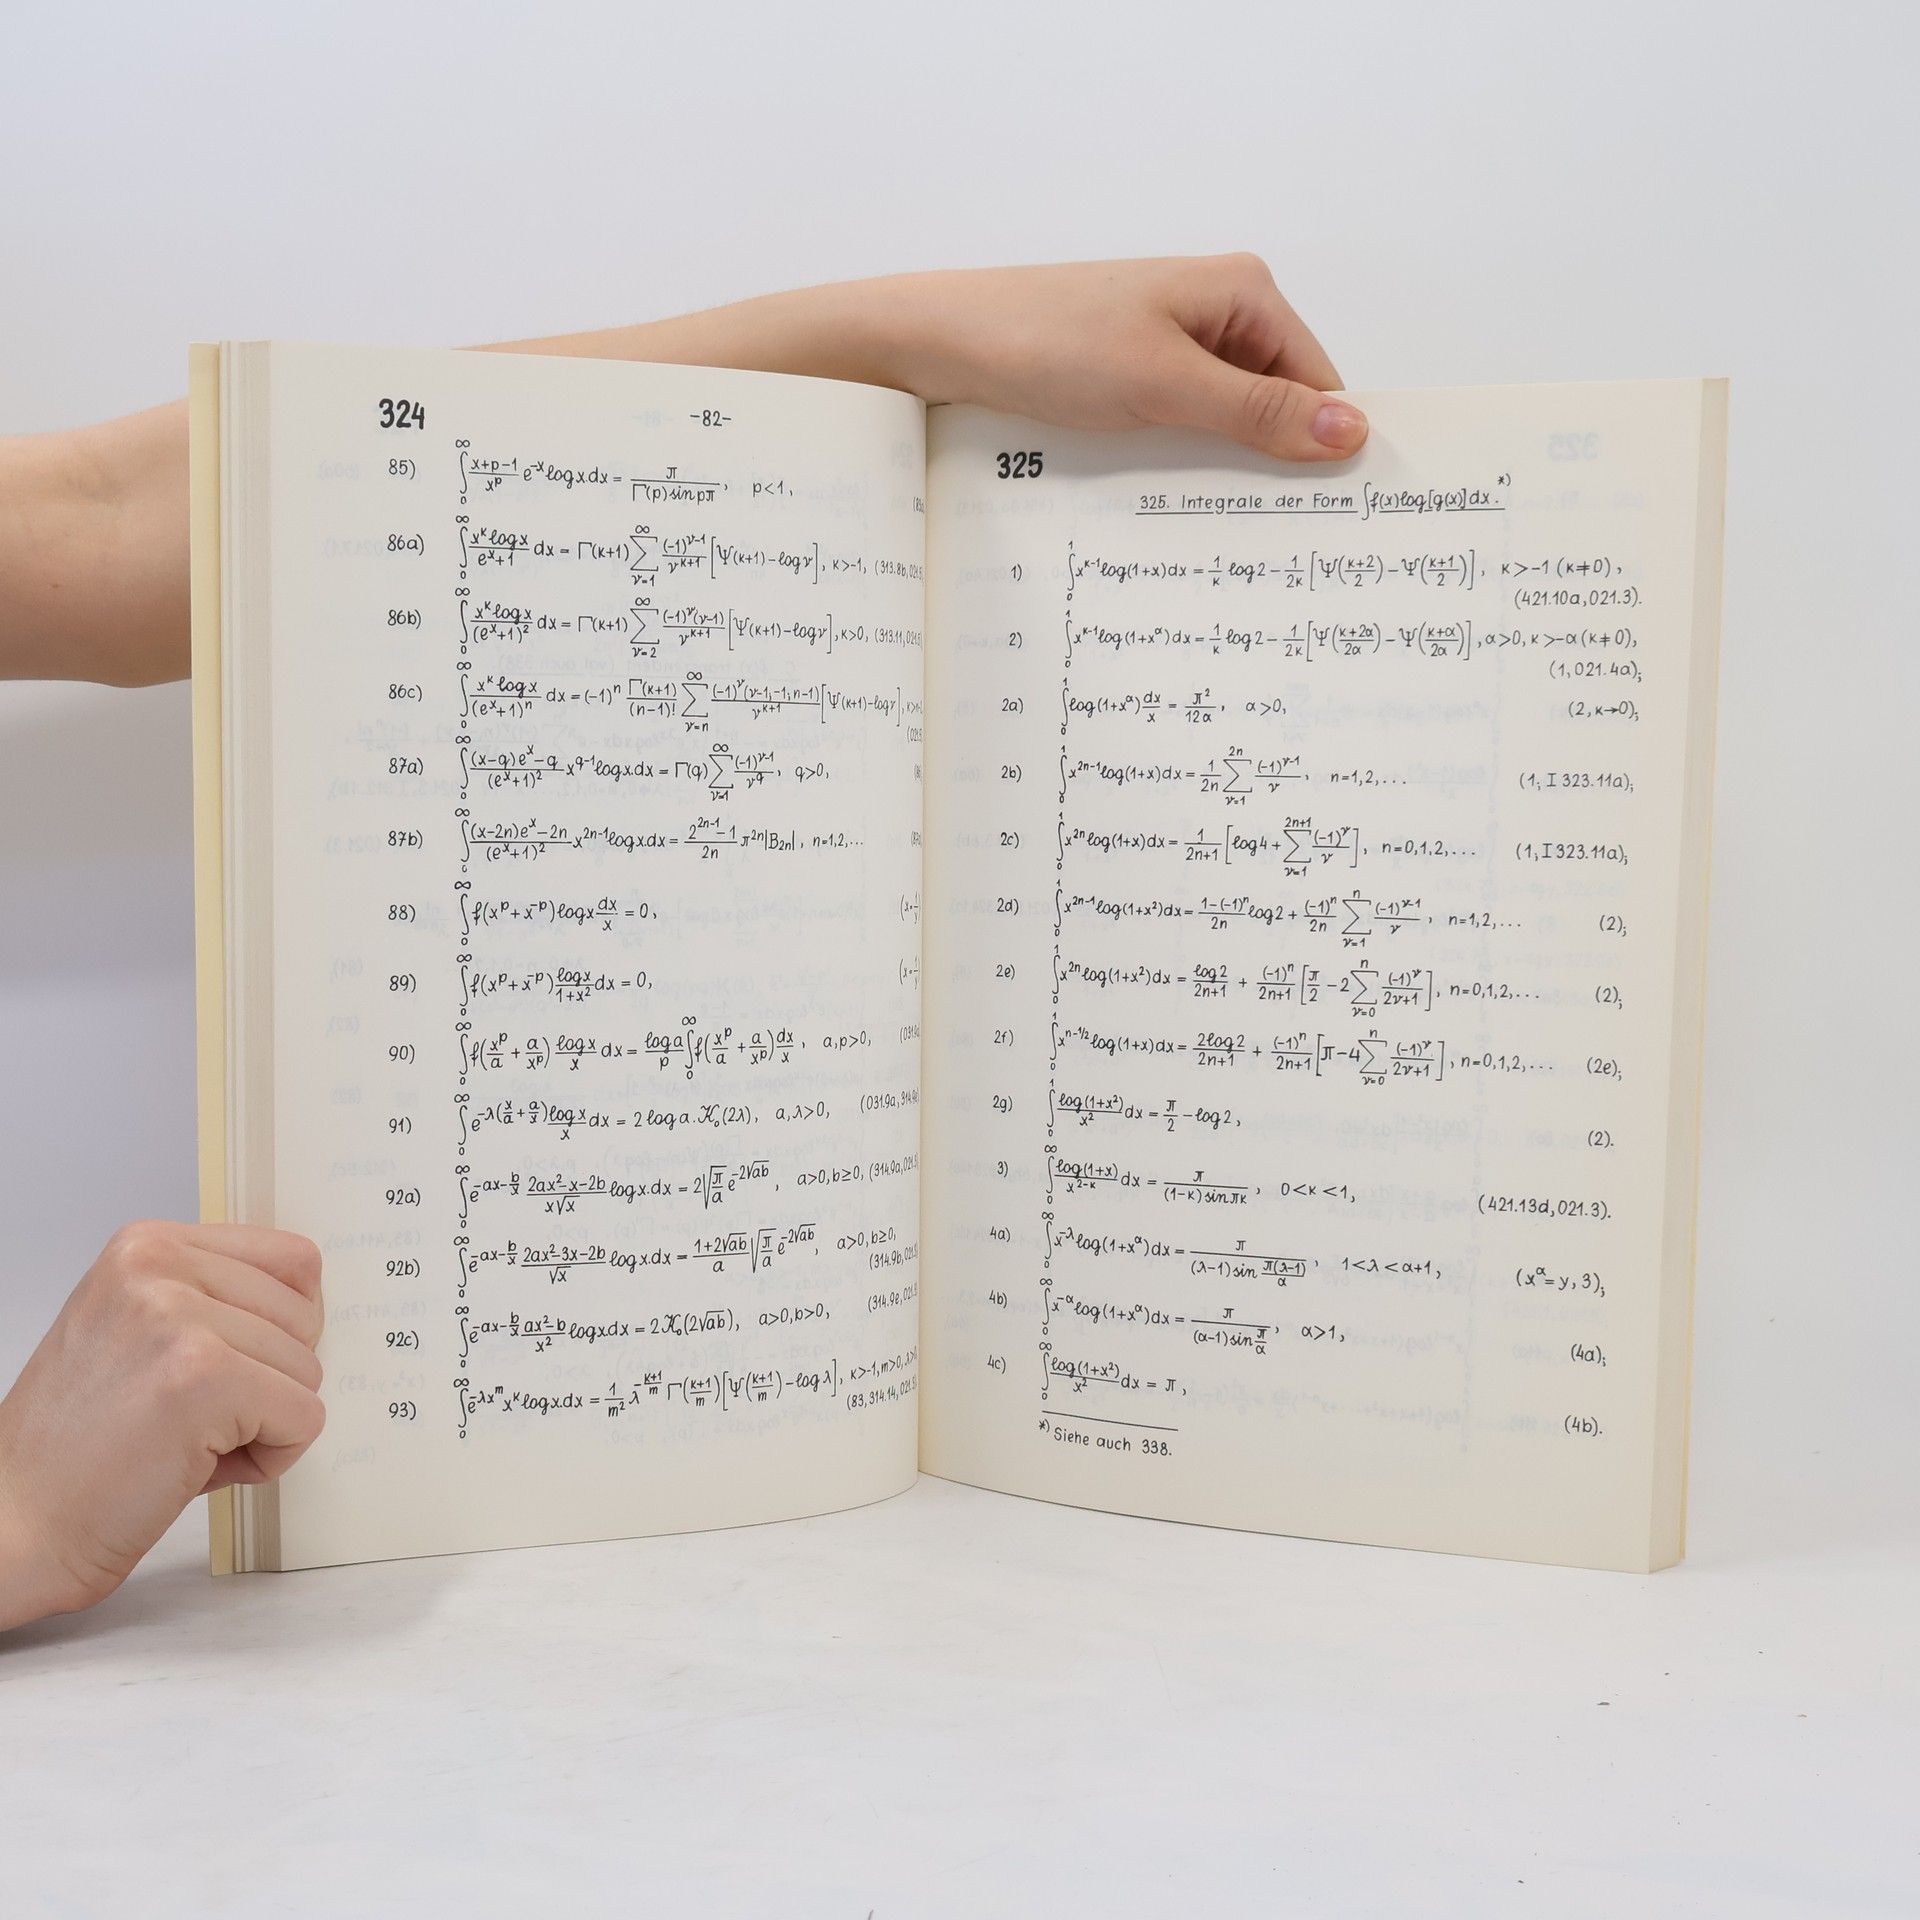 324
-82-
85) ∫₀^∞ (x+p-1)/x^p e^{-x} log x dx = π/(Γ(p) sin pπ), p<1,
86a) ∫₀^∞ (x^κ log x)/(e^x+1) dx = Γ(κ+1) ∑_{ν=1}^∞ (-1)^{ν-1}/ν^{κ+1} [Ψ(κ+1)-log ν], κ>-1, (313.8b,
86b) ∫₀^∞ (x^κ log x)/(e^x+1)² dx = Γ(κ+1) ∑_{ν=2}^∞ (-1)^ν(ν-1)/ν^{κ+1} [Ψ(κ+1)-log ν], κ>0, (313.11,
86c) ∫₀^∞ (x^κ log x)/(e^x+1)^n dx = (-1)^n Γ(κ+1)/(n-1)! ∑_{ν=n}^∞ (-1)^ν(ν-1;-1;n-1)/ν^{κ+1} [Ψ(κ+1)-log ν],
87a) ∫₀^∞ ((x-q)e^x-q)/(e^x+1)² x^{q-1} log x dx = Γ(q) ∑_{ν=1}^∞ (-1)^{ν-1}/ν^q, q>0,
87b) ∫₀^∞ ((x-2n)e^x-2n)/(e^x+1)² x^{2n-1} log x dx = (2^{2n-1}-1)/2n π^{2n}|B_{2n}|, n=1,2,...
88) ∫₀^∞ f(x^p+x^{-p}) log x dx/x = 0,
89) ∫₀^∞ f(x^p+x^{-p}) log x/(1+x²) dx = 0,
90) ∫₀^∞ f(x^p/a + a/x^p) log x/x dx = log a/p ∫₀^∞ f(x^p/a + a/x^p) dx/x, a,p>0,
91) ∫₀^∞ e^{-λ(x/a + a/x)} log x/x dx = 2 log a . K₀(2λ), a,λ>0, (031.9a,
92a) ∫₀^∞ e^{-ax-b/x} (2ax²-x-2b)/(x√x) log x dx = 2√(π/a) e^{-2√ab}, a>0, b≥0, (314.9a,
92b) ∫₀^∞ e^{-ax-b/x} (2ax²-3x-2b)/√x log x dx = (1+2√ab)/a √(π/a) e^{-2√ab}, a>0, b≥0,
(314.9b,
92c) ∫₀^∞ e^{-ax-b/x} (ax²-b)/x² log x dx = 2K₀(2√ab), a>0, b>0, (314.9e,
93) ∫₀^∞ e^{-λx^m} x^κ log x dx = 1/m² λ^{-(κ+1)/m} Γ((κ+1)/m) [Ψ((κ+1)/m)-log λ], κ>-1, m>0,
(83, 314.14,
325
325. Integrale der Form ∫f(x)log[g(x)]dx.*)
1) ∫₀¹ x^{κ-1} log(1+x)dx = 1/κ log 2 - 1/2κ [Ψ((κ+2)/2) - Ψ((κ+1)/2)], κ>-1 (κ≠0),
(421.10a, 021.3).
2) ∫₀¹ x^{κ-1} log(1+x^α)dx = 1/κ log 2 - 1/2κ [Ψ((κ+2α)/2α) - Ψ((κ+α)/2α)], α>0, κ>-α (κ≠0),
(1, 021.4a);
2a) ∫₀¹ log(1+x^α) dx/x = π²/12α, α>0, (2, κ→0);
2b) ∫₀¹ x^{2n-1} log(1+x)dx = 1/2n ∑_{ν=1}^{2n} (-1)^{ν-1}/ν, n=1,2,... (1; I 323.11a);
2c) ∫₀¹ x^{2n} log(1+x)dx = 1/(2n+1) [log 4 + ∑_{ν=1}^{2n+1} (-1)^ν/ν], n=0,1,2,... (1; I 323.11a);
2d) ∫₀¹ x^{2n-1} log(1+x²)dx = (1-(-1)^n)/2n log 2 + (-1)^n/2n ∑_{ν=1}^n (-1)^{ν-1}/ν, n=1,2,... (2);
2e) ∫₀¹ x^{2n} log(1+x²)dx = log 2/(2n+1) + (-1)^n/(2n+1) [π/2 - 2∑_{ν=0}^n (-1)^ν/(2ν+1)], n=0,1,2,... (2);
2f) ∫₀¹ x^{n-1/2} log(1+x)dx = 2 log 2/(2n+1) + (-1)^n/(2n+1) [π - 4∑_{ν=0}^n (-1)^ν/(2ν+1)], n=0,1,2,... (2e);
2g) ∫₀¹ log(1+x²)/x² dx = π/2 - log 2, (2).
3) ∫₀^∞ log(1+x)/x^{2-κ} dx = π/((1-κ) sin πκ), 0<κ<1, (421.13d, 021.3).
4a) ∫₀^∞ x^{-λ} log(1+x^α)dx = π/((λ-1) sin π(λ-1)/α), 1<λ<α+1, (x^α=y, 3);
4b) ∫₀^∞ x^{-α} log(1+x^α)dx = π/((α-1) sin π/α), α>1, (4a);
4c) ∫₀^∞ log(1+x²)/x² dx = π, (4b).
*) Siehe auch 338.